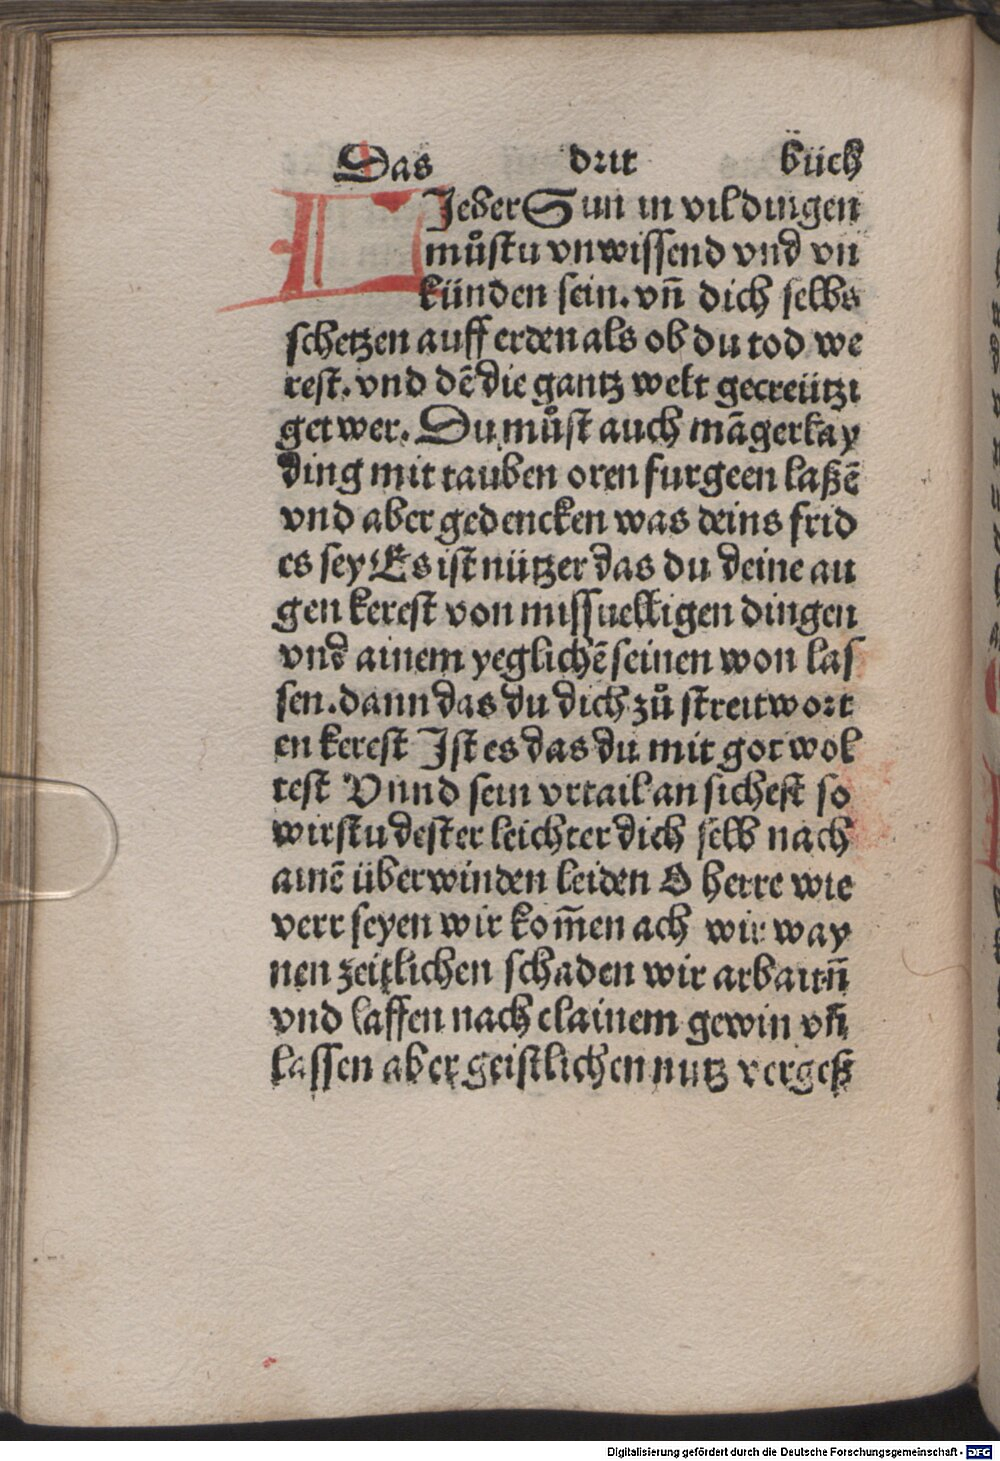 Das drit büch
LJeber Sun in vil dingen
můstu vnwissend vnd vn
künden sein. vn̄ dich selbs
schetzen auff erden als ob du tod we
rest. vnd dē die gantz welt gecreützi
get wer. Du můst auch māgerlay
ding mit tauben oren furgeen laßē
vnd aber gedencken was deins frid
es sey Es ist nützer das du deine au
gen kerest von missuelligen dingen
vnd ainem yeglichē seinen won las
sen. dann das du dich zů streitwort
en kerest Jst es das du mit got wol
test Vnnd sein vrtail an sichest so
wirstu dester leichter dich selb nach
ainē überwinden leiden O herre wie
verr seyen wir kom̄en ach wir way
nen zeitlichen schaden wir arbaitn̄
vnd laffen nach clainem gewin vn̄
lassen aber geistlichen nutz vergeß
Digitalisierung gefördert durch die Deutsche Forschungsgemeinschaft - DFG